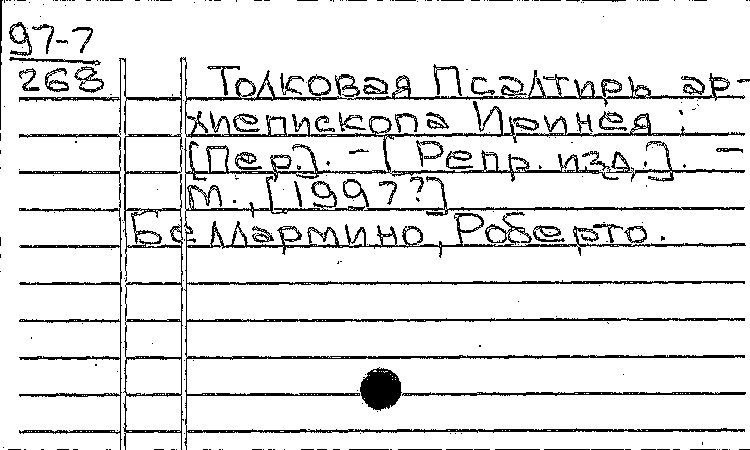 97-7
268 Толковая Псалтирь ар-
хиепископа Иринея :
[Пер.]. - [Репр. изд.]. -
М., [1997?]
Беллармино, Роберто.